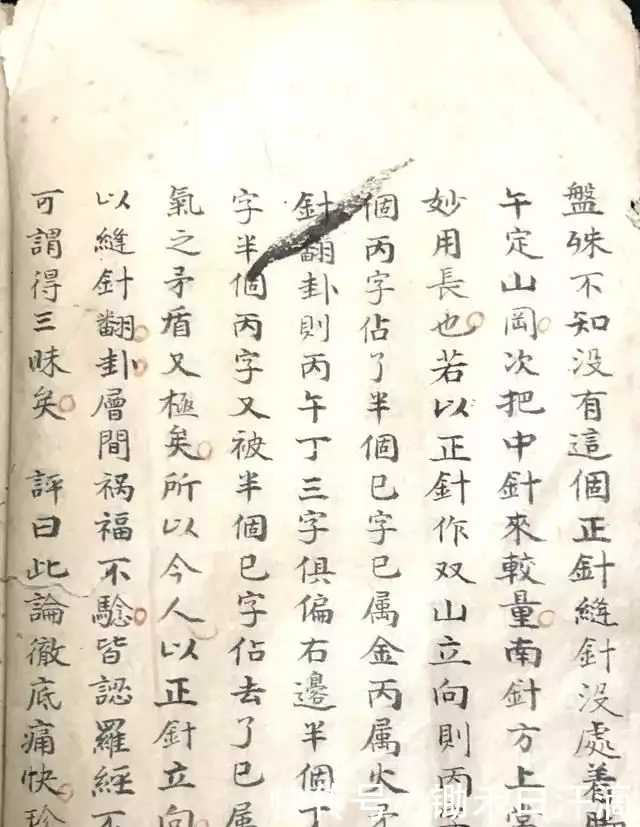 盤殊不知没有這個正針縫針没處着
午定山岡次把中針來較量南針方上
妙用長也若以正針作双山立向則丙
個丙字佔了半個巳字巳属金丙属火矛
針翻卦則丙午丁三字俱偏右邊半個丁
字半個丙字又被半個巳字佔去了巳属
氣之矛盾又極矣所以今人以正針立向
以縫針翻卦層間禍福不驗皆認羅經不
可謂得三昧矣 評曰此論徹底痛快珍
鋤禾日汗滴